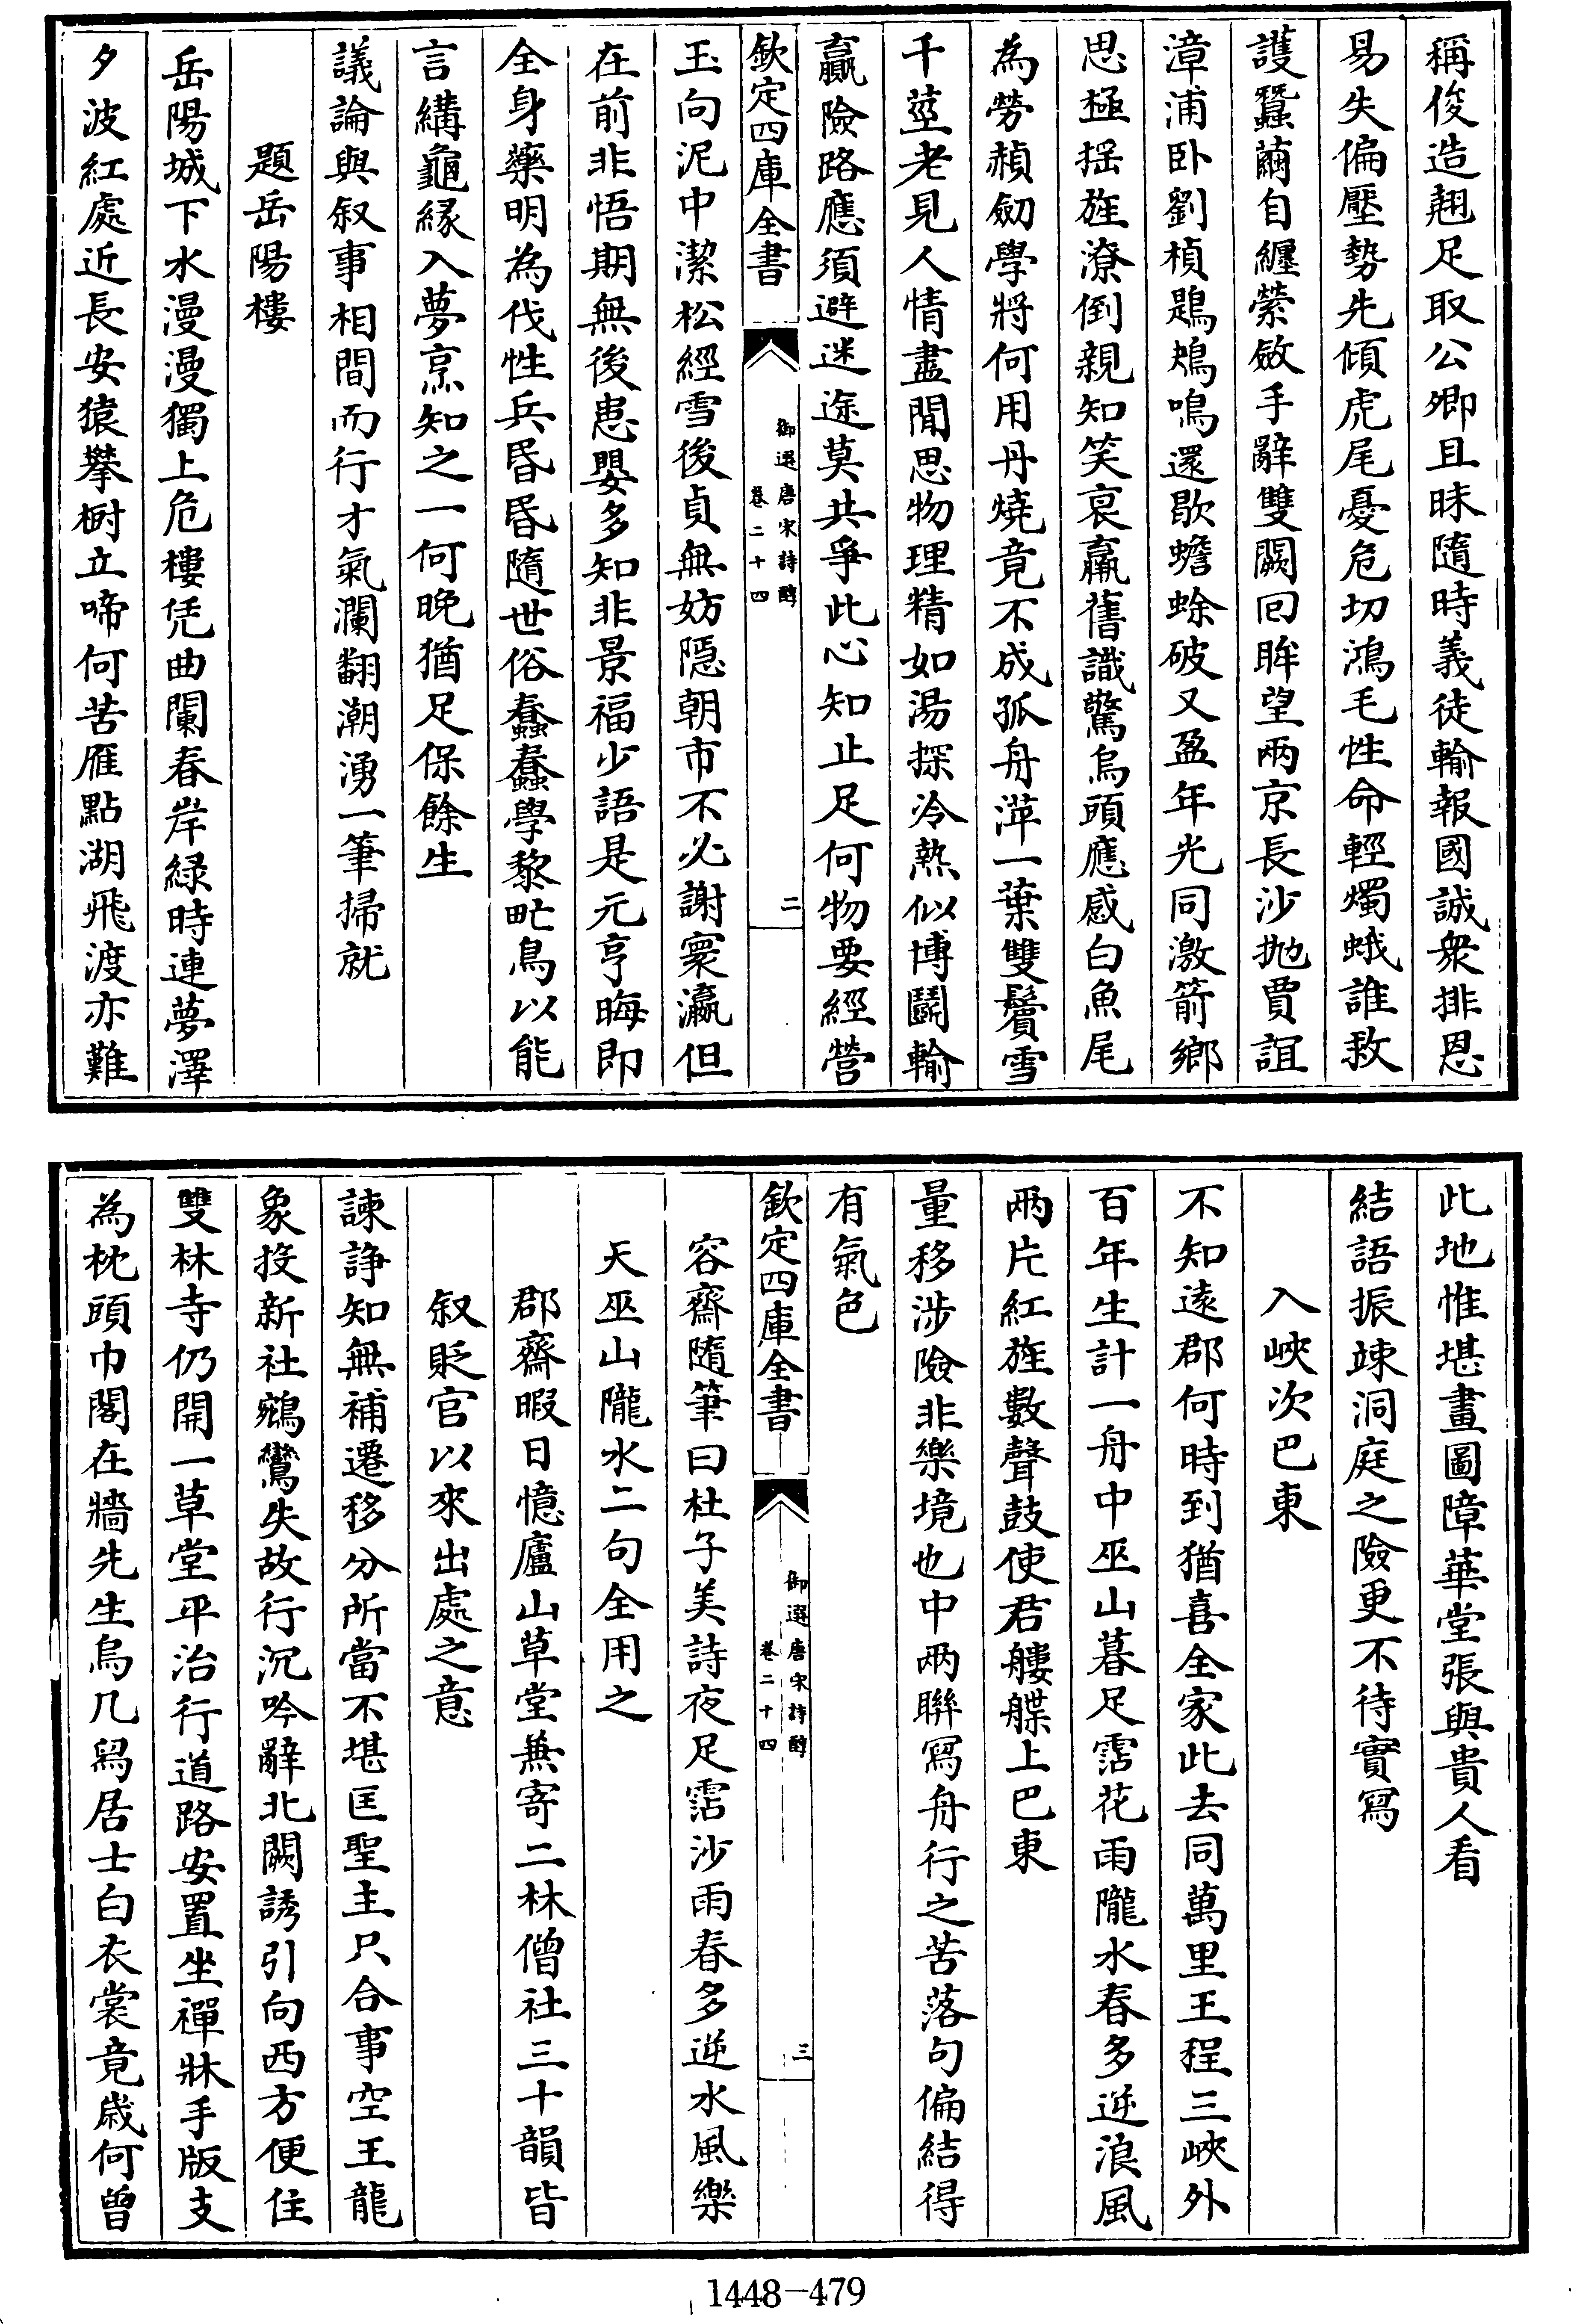 稱俊造翹足取公卿且昧隨時義徒輸報國誠衆排恩
易失偏壓勢先傾虎尾憂危切鴻毛性命輕燭蛾誰救
護蠶繭自纏縈斂手辭雙闕囘眸望兩京長沙抛賈誼
漳浦卧劉楨鶗鴂鳴還歇蟾蜍破又盈年光同激箭鄉
思極揺旌潦倒親知笑哀羸舊識驚烏頭應感白魚尾
為勞赬劒學將何用丹燒竟不成孤舟萍一葉雙鬢雪
千莖老見人情盡閒思物理精如湯探冷熱似博鬭輸
贏險路應須避迷途莫共爭此心知止足何物要經營
欽定四庫全書
御選唐宋詩醇
卷二十四
二
玉向泥中潔松經雪後貞無妨隱朝市不必謝寰瀛但
在前非悟期無後患嬰多知非景福少語是元亨晦即
全身藥明為伐性兵昏昏隨世俗蠢蠢學黎甿鳥以能
言緤龜緣入夢烹知之一何晚猶足保餘生
議論與叙事相間而行才氣瀾翻潮湧一筆掃就
題岳陽樓
岳陽城下水漫漫獨上危樓凭曲闌春岸綠時連夢澤
夕波紅處近長安猿攀樹立啼何苦雁點湖飛渡亦難
此地惟堪畫圖障華堂張與貴人看
結語振竦洞庭之險更不待實寫
入峽次巴東
不知遠郡何時到猶喜全家此去同萬里王程三峽外
百年生計一舟中巫山暮足霑花雨隴水春多逆浪風
兩片紅旌數聲鼓使君艛艓上巴東
量移涉險非樂境也中兩聯寫舟行之苦落句偏結得
有氣色
欽定四庫全書
御選唐宋詩醇
卷二十四
三
容齋隨筆曰杜子美詩夜足霑沙雨春多逆水風樂
天巫山隴水二句全用之
郡齋暇日憶廬山草堂兼寄二林僧社三十韻皆
叙貶官以來出處之意
諫諍知無補遷移分所當不堪匡聖主只合事空王龍
象投新社鵷鸞失故行沉吟辭北闕誘引向西方便住
雙林寺仍開一草堂平治行道路安置坐禪牀手版支
為枕頭巾閣在牆先生烏几舄居士白衣裳竟歲何曾
1448-479